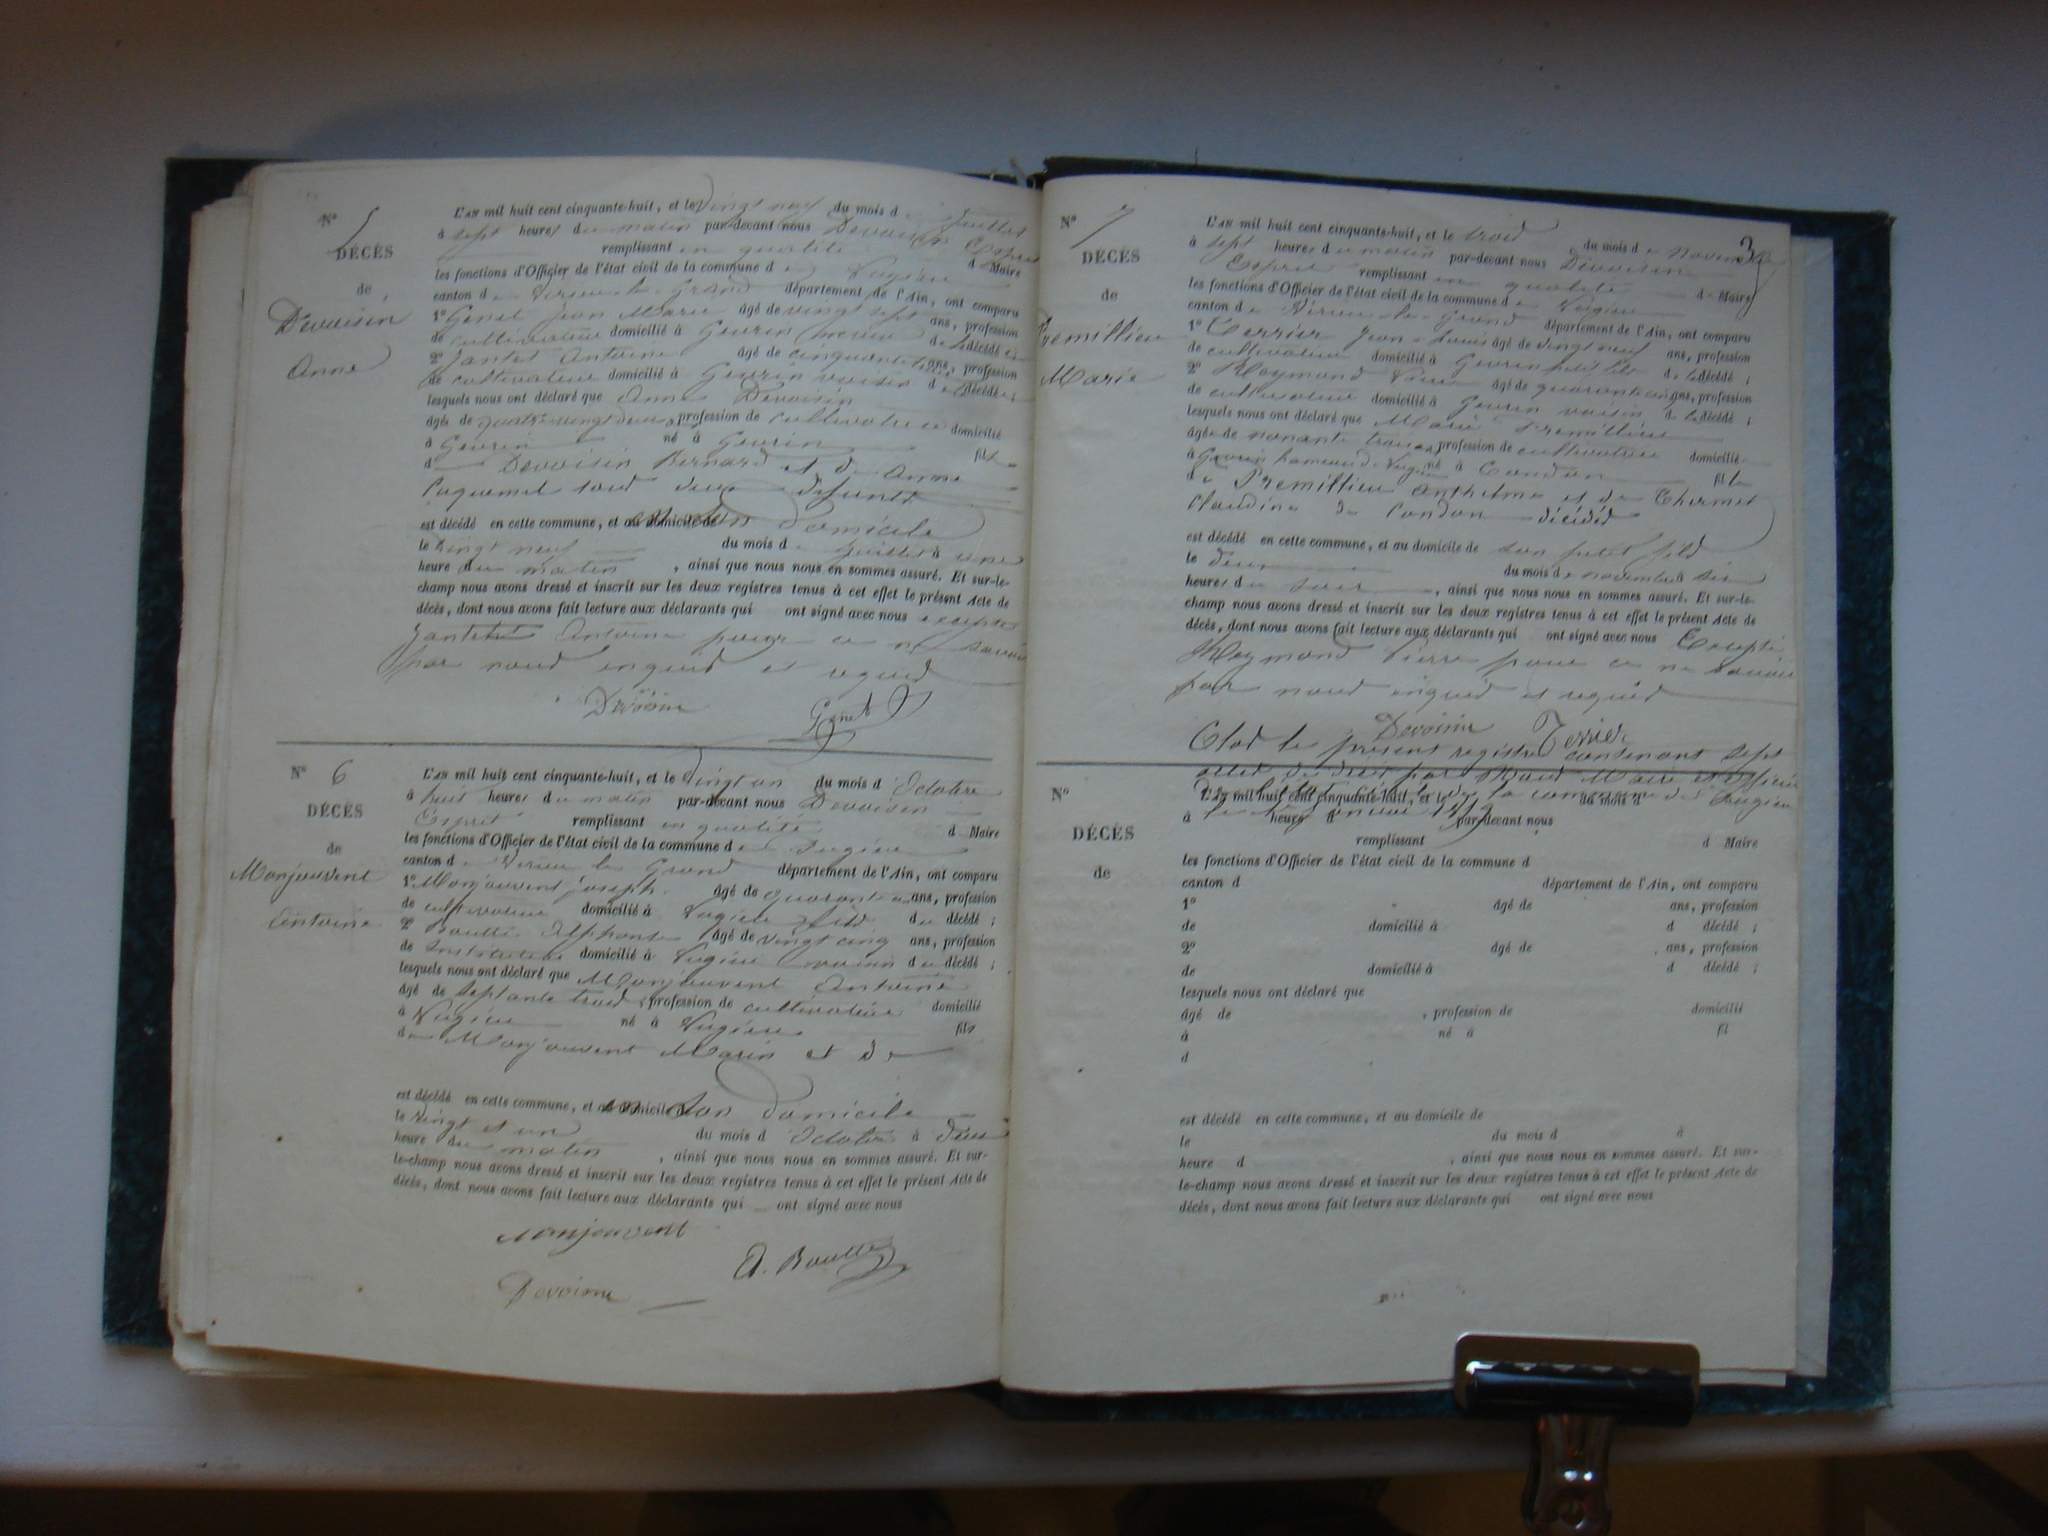 N° 5
DÉCÈS
de
Devoisin
Anne
L'AN mil huit cent cinquante-huit, et le vingt neuf du mois de Juillet
à sept heures du matin par-devant nous Devoisin Esprit
remplissant en qualité d Maire
les fonctions d'Officier de l'état civil de la commune de Vugieu
canton de Virieu-le-Grand département de l'Ain, ont comparu
1° Genet Jean Marie âgé de vingt sept ans, profession
de cultivateur domicilié à Gevrin de la décédé
2° Jantet Antoine âgé de cinquante ans, profession
de cultivateur domicilié à Gevrin voisin de la décédé ;
lesquels nous ont déclaré que Anne Devoisin
âgée de quatre vingt deux, profession de cultivatrice domicilié
à Gevrin né à Gevrin fille
d Devoisin Bernard et de Anne
Cuquemel tous deux défunts
est décédé en cette commune, et en son domicile
le vingt neuf du mois de Juillet à une
heure du matin, ainsi que nous nous en sommes assuré. Et sur-le-
champ nous avons dressé et inscrit sur les deux registres tenus à cet effet le présent Acte de
décès, dont nous avons fait lecture aux déclarants qui ont signé avec nous excepté
Jantet Antoine pour ce ne savoir
par nous enquis et requis
Devoisin Genet
N° 6
DÉCÈS
de
Monjouvent
Antoine
L'AN mil huit cent cinquante-huit, et le vingt un du mois d Octobre
à huit heures du matin par-devant nous Devoisin
Esprit remplissant en qualité d Maire
les fonctions d'Officier de l'état civil de la commune de Vugieu
canton de Virieu le Grand département de l'Ain, ont comparu
1° Monjouvent Joseph âgé de quarante ans, profession
de cultivateur domicilié à Vugieu fils du décédé ;
2° Boutte Alphonse âgé de vingt cinq ans, profession
de Instituteur domicilié à Vugieu voisin du décédé ;
lesquels nous ont déclaré que Monjouvent Antoine
âgé de septante trois, profession de cultivateur domicilié
à Vugieu né à Vugieu fils
de Monjouvent Marin et de
est décédé en cette commune, et en son domicile
le vingt et un du mois d Octobre à deux
heure du matin, ainsi que nous nous en sommes assuré. Et sur-
le-champ nous avons dressé et inscrit sur les deux registres tenus à cet effet le présent Acte de
décès, dont nous avons fait lecture aux déclarants qui ont signé avec nous
Monjouvent
A. Boutte
Devoisin
3
N° 7
DÉCÈS
de
Premillieu
Marie
L'AN mil huit cent cinquante-huit, et le trois du mois de Novembre
à sept heures du matin par-devant nous Devoisin
Esprit remplissant en qualité d Maire
les fonctions d'Officier de l'état civil de la commune de Vugieu
canton de Virieu-le-Grand département de l'Ain, ont comparu
1° Terrier Jean-Louis âgé de vingt neuf ans, profession
de cultivateur domicilié à Gevrin petit fils de la décédé ;
2° Reymond Pierre âgé de quarante cinq ans, profession
de cultivateur domicilié à Gevrin voisin de la décédé ;
lesquels nous ont déclaré que Marie Premillieu
âgée de nonante trois, profession de cultivatrice domicilié
à Gevrin hameau de Vugieu né à Condon fille
de Premillieu Anthelme et de Thermet
Claudine de Condon décédés
est décédé en cette commune, et au domicile de son petit fils
le deux du mois de novembre à six
heures du soir, ainsi que nous nous en sommes assuré. Et sur-le-
champ nous avons dressé et inscrit sur les deux registres tenus à cet effet le présent Acte de
décès, dont nous avons fait lecture aux déclarants qui ont signé avec nous Excepté
Reymond Pierre pour ce ne savoir
par nous enquis et requis
Devoisin Terrier
Clos le présent registre contenant sept
actes de décès par Nous Maire et officier
de l'état civil de la commune de Vugieu
N°
DÉCÈS
de
L'AN mil huit cent cinquante-huit, et le du mois d
à heure d par-devant nous
remplissant d Maire
les fonctions d'Officier de l'état civil de la commune d
canton d département de l'Ain, ont comparu
1° âgé de ans, profession
de domicilié à d décédé ;
2° âgé de ans, profession
de domicilié à d décédé ;
lesquels nous ont déclaré que
âgé de , profession de domicilié
à né à fil
d
est décédé en cette commune, et au domicile de
le du mois d à
heure d , ainsi que nous nous en sommes assuré. Et sur-
le-champ nous avons dressé et inscrit sur les deux registres tenus à cet effet le présent Acte de
décès, dont nous avons fait lecture aux déclarants qui ont signé avec nous